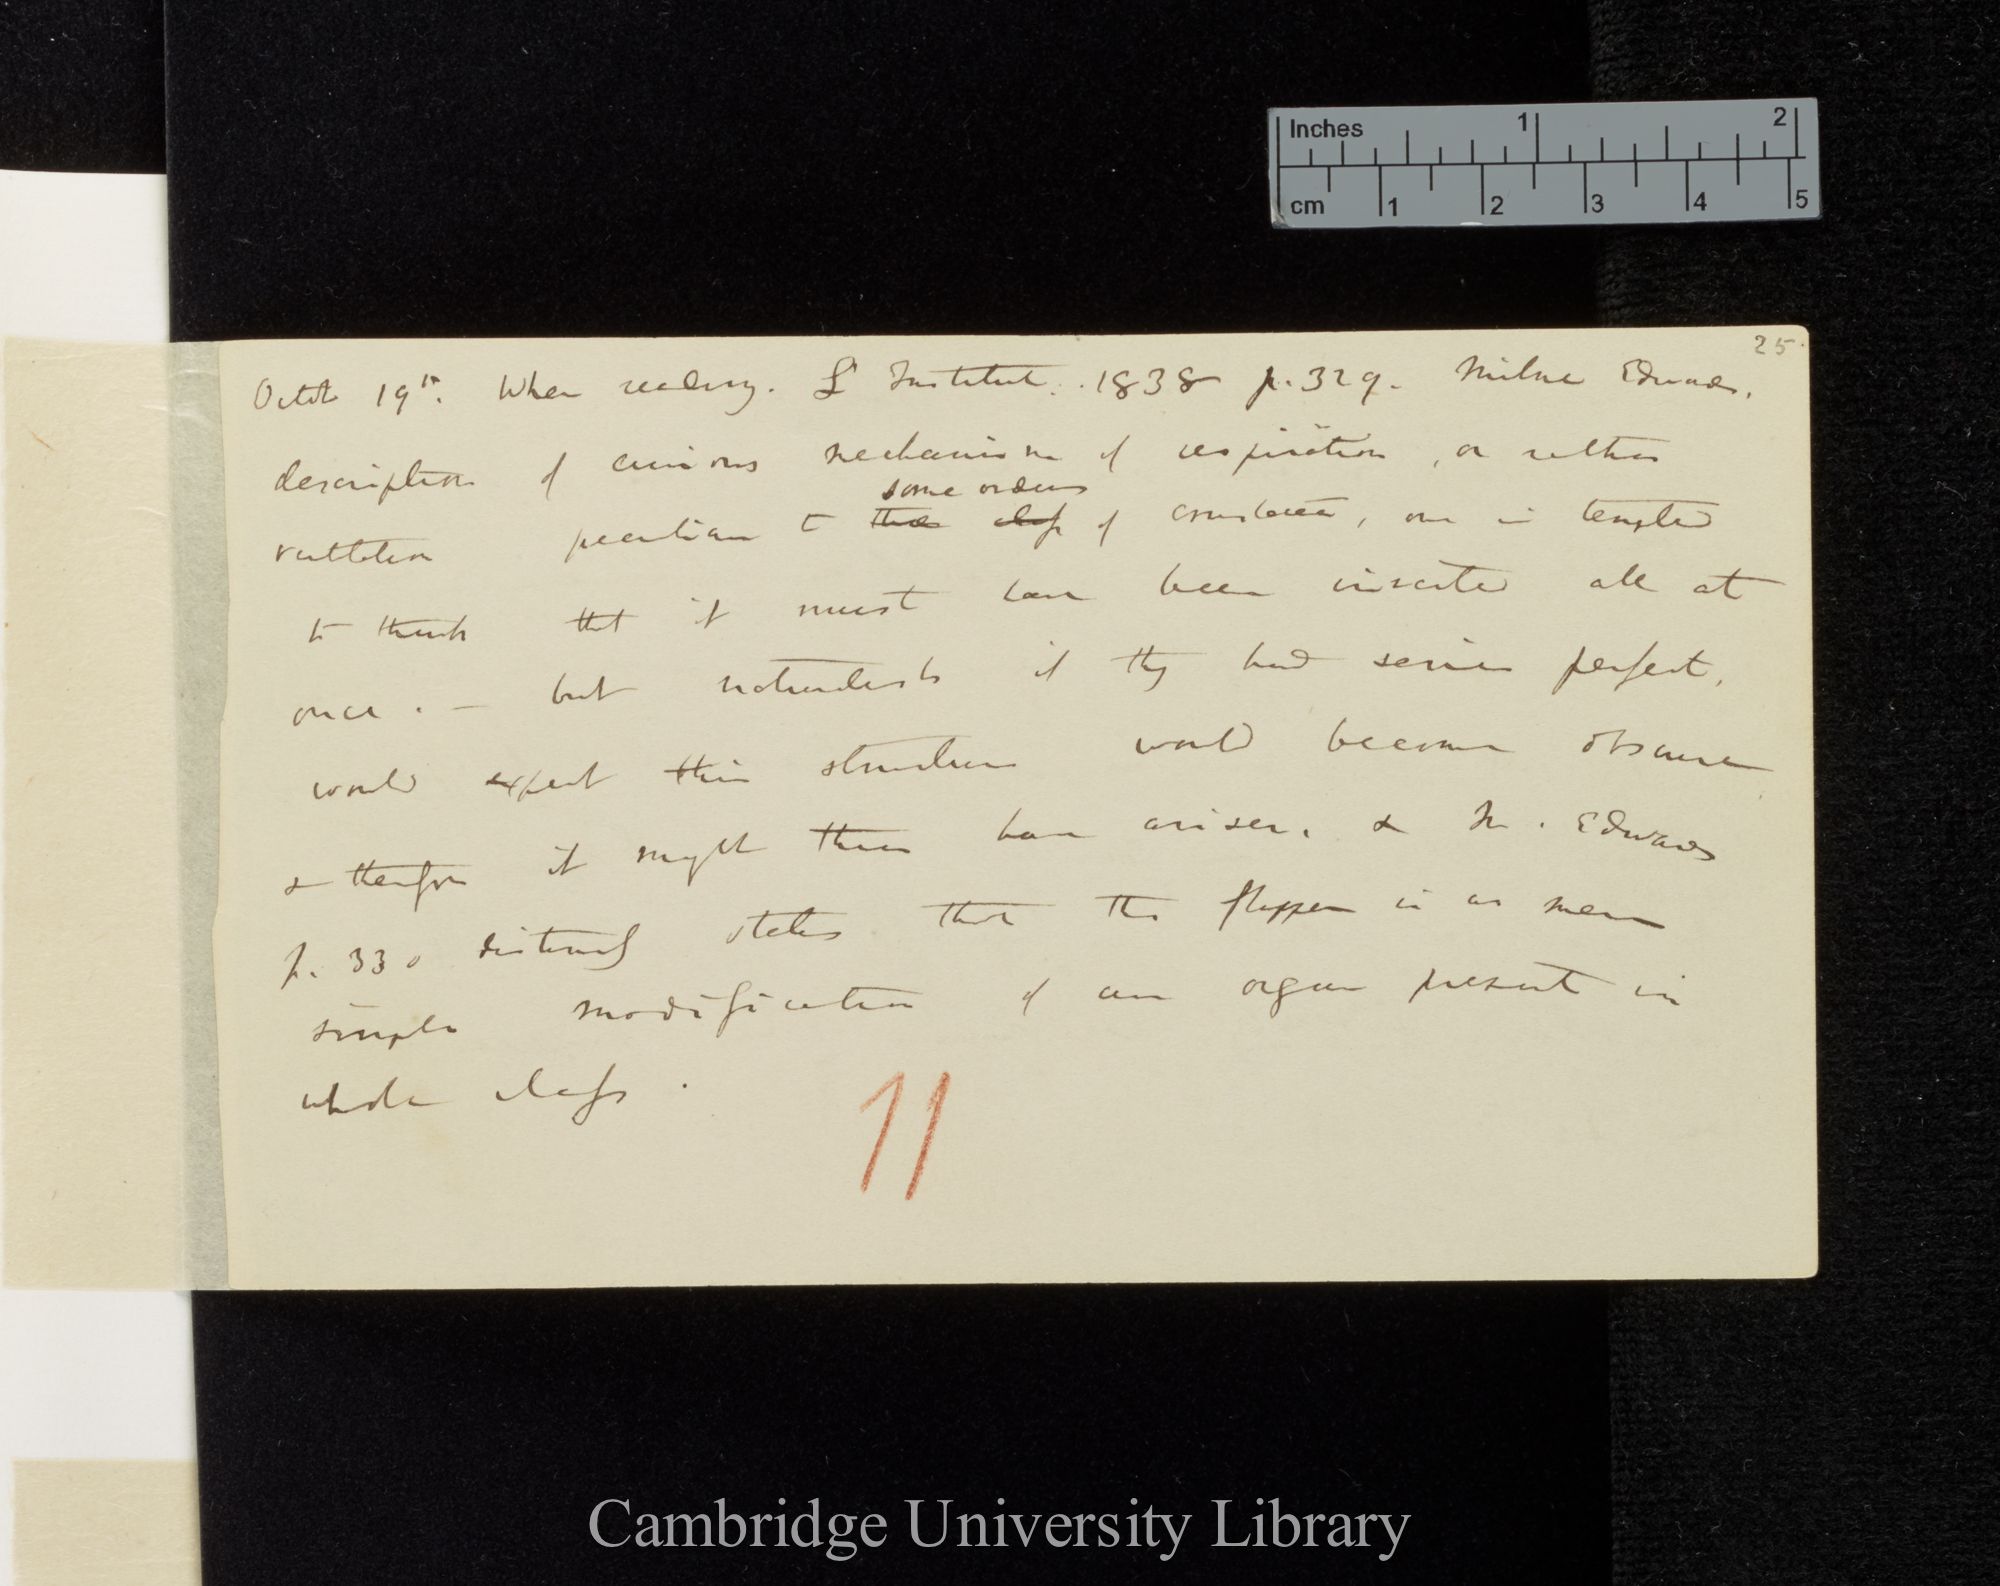 Inches 1 2
cm 1 2 3 4 5
25
Octob 19th. When reading. L' Institut. 1838 p. 329. Milne Edwards.
description of curious mechanism of respiration, or rather
peculiar to some orders of crustacea, one is tempted
to think that it must have been invented all at
once. — but naturalists if they had series perfect,
would expect this structure would become obscure
& therefore it might thus have arisen. & M. Edwards
p. 330 distinctly states that the flapper is as mere
simple modification of an organ present in
whole class.
11
Cambridge University Library